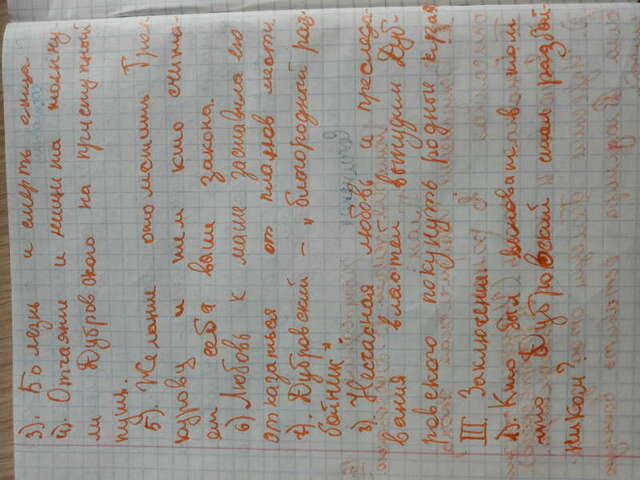 3). Болезнь и смерть отца
4). Отчаяние и нищита толкну-
ли Дубровского на преступный
путь.
5). Желание отомстить Трое-
курову и тем кто счита-
ет себя выше закона.
6) Любовь к маше заставила его
отказаться от планов мести
7). Дубровский – "благородный раз-
бойник"
8). Несчасная любовь и преследо-
вания властей вынудили Дуб-
ровского покунуть родные края
III. Заключение:
1). Кто был виноват в том
что Дубровский стал разбой-
ником?